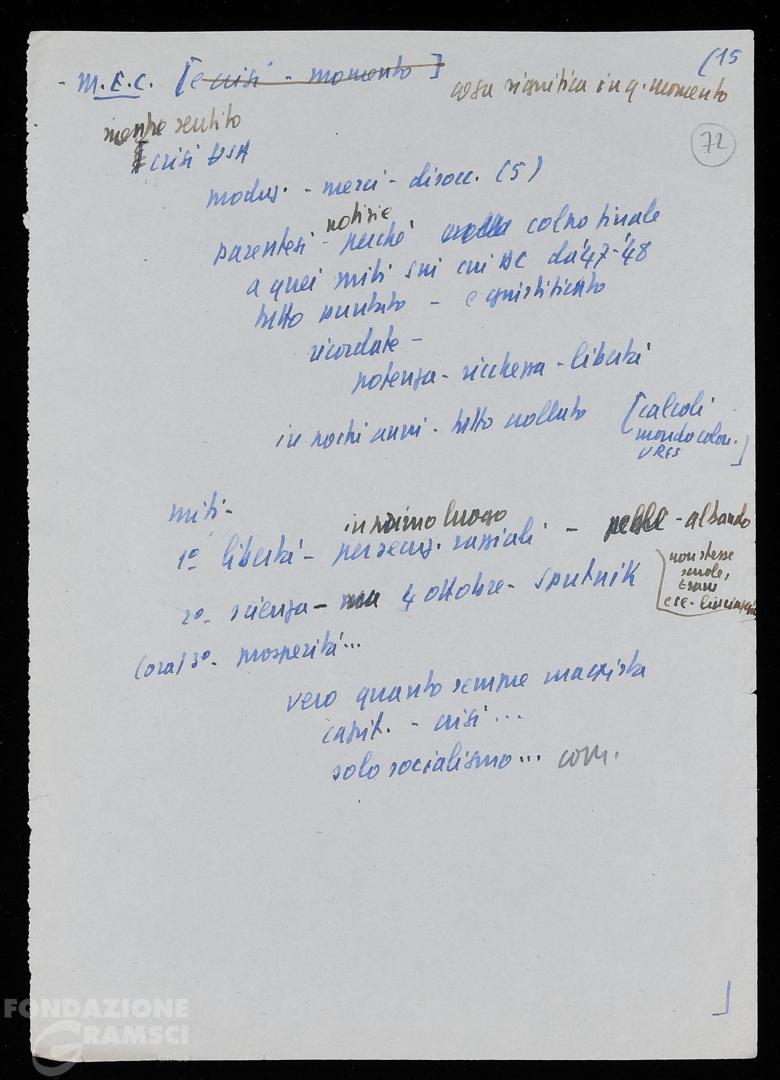 (15
- M.E.C. [e crisi - momento]
cosa significa in q. momento
72
mentre sentito
[crisi USA
produz. - merci - disocc. (5)
notizie
parentesi - perché crolla colpo finale
a quei miti su cui DC da '47-'48
tutto puntato - e giustificato
ricordate -
potenza - ricchezza - libertà
in pochi anni - tutto crollato [calcoli
mondo colon.
URSS]
miti -
in primo luogo
1º libertà - persecuz. razziali - pelle - al bando
non stesse
scuole,
tram
ecc - linciaggi
2º - scienza - ma 4 ottobre - Sputnik
(ora) 3º - prosperità...
vero quanto sempre marxista
capit. - crisi...
solo socialismo... com.
]
FONDAZIONE
GRAMSCI
onlus